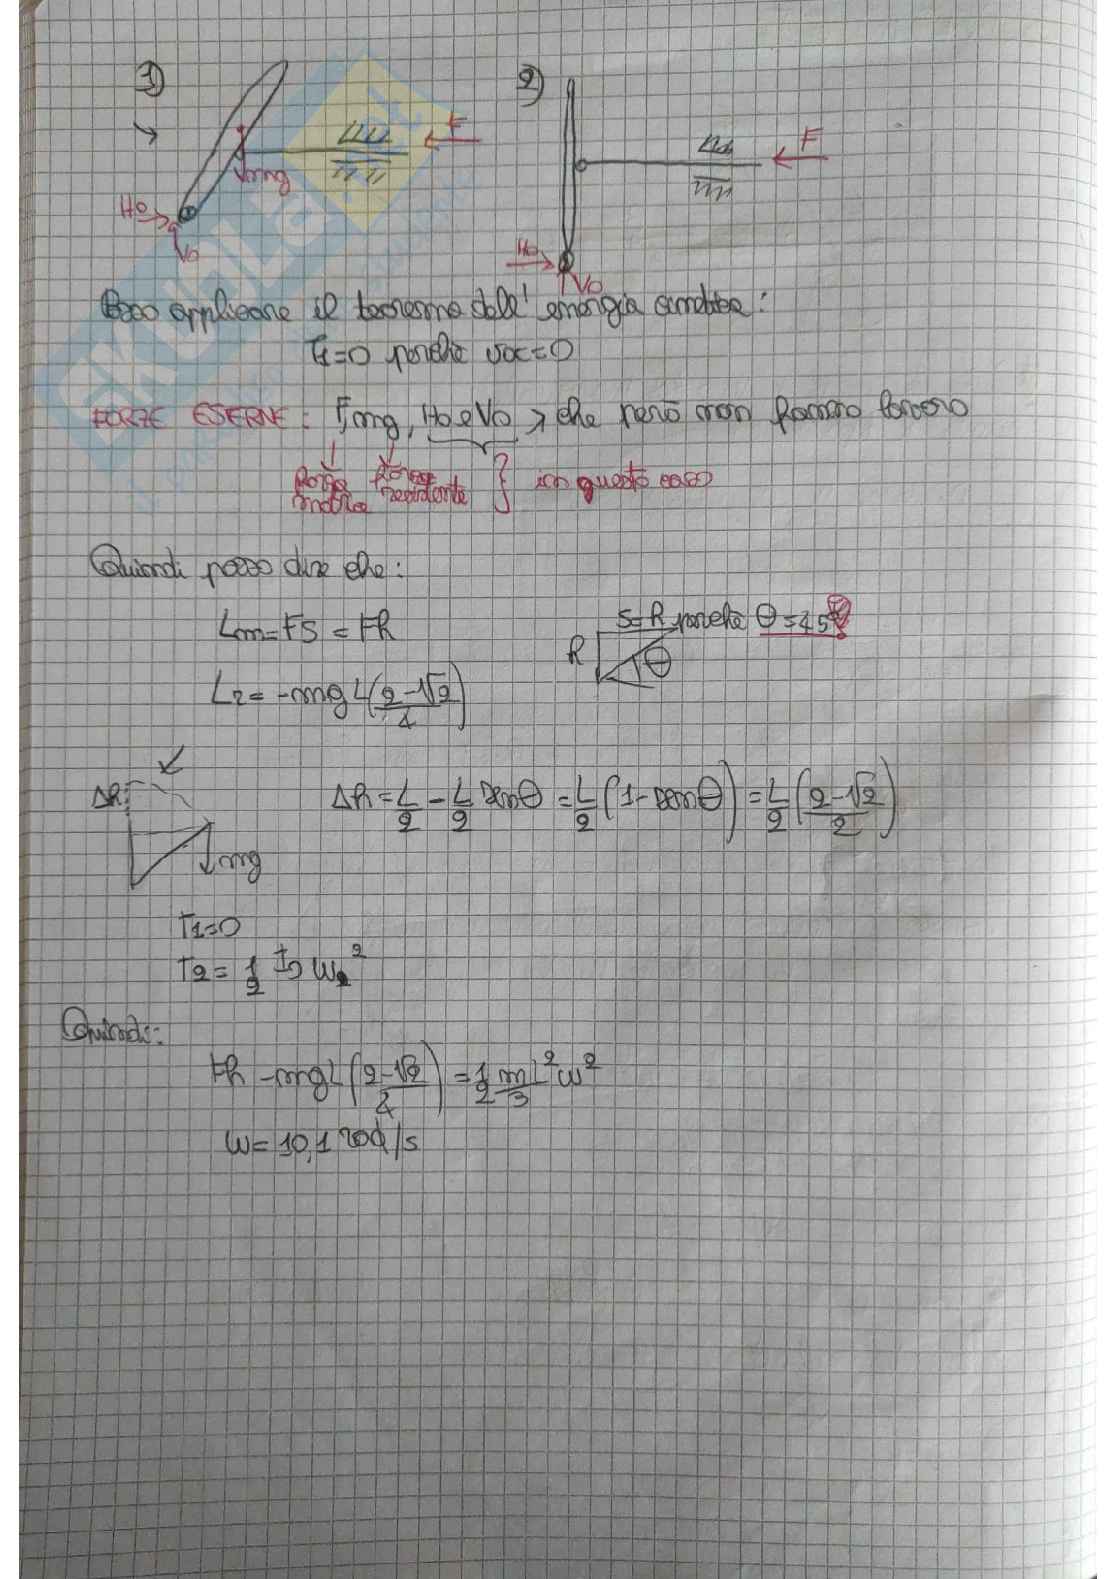 1)
2)
F
F
mg
Ho
Vo
Ho
Vo
Posso applicare il teorema dell'energia cinetica:
T1=0 perché
FORZE ESTERNE: F, mg, Ho e Vo → che però non fanno lavoro
forza motrice
forza resistente
} in questo caso
Quindi posso dire che:
Lm = FS = Fh
S=h perché θ=45°
h
θ
L2 = -mg L(2-√2/4)
Δh
mg
Δh = L/2 - L/2 senθ = L/2 (1-senθ) = L/2 (2-√2/2)
T1=0
T2= 1/2 Io ω2²
Quindi:
Fh - mgL(2-√2/4) = 1/2 m/3 L²ω²
ω= 10,1 rad/s